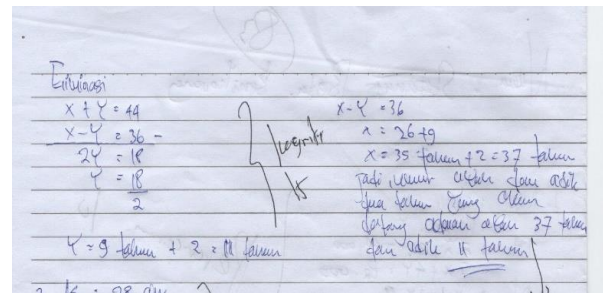 Eliminasi
x + y = 44
x - y = 36 -
2y = 18
y = 18
2
y = 9 tahun + 2 = 11 tahun
x - y = 36
x = 26 + 9
x = 35 tahun + 2 = 37 tahun
jadi, umur dan adik
dua tahun yang akan
datang adalah 37 tahun
dan adik 11 tahun
15